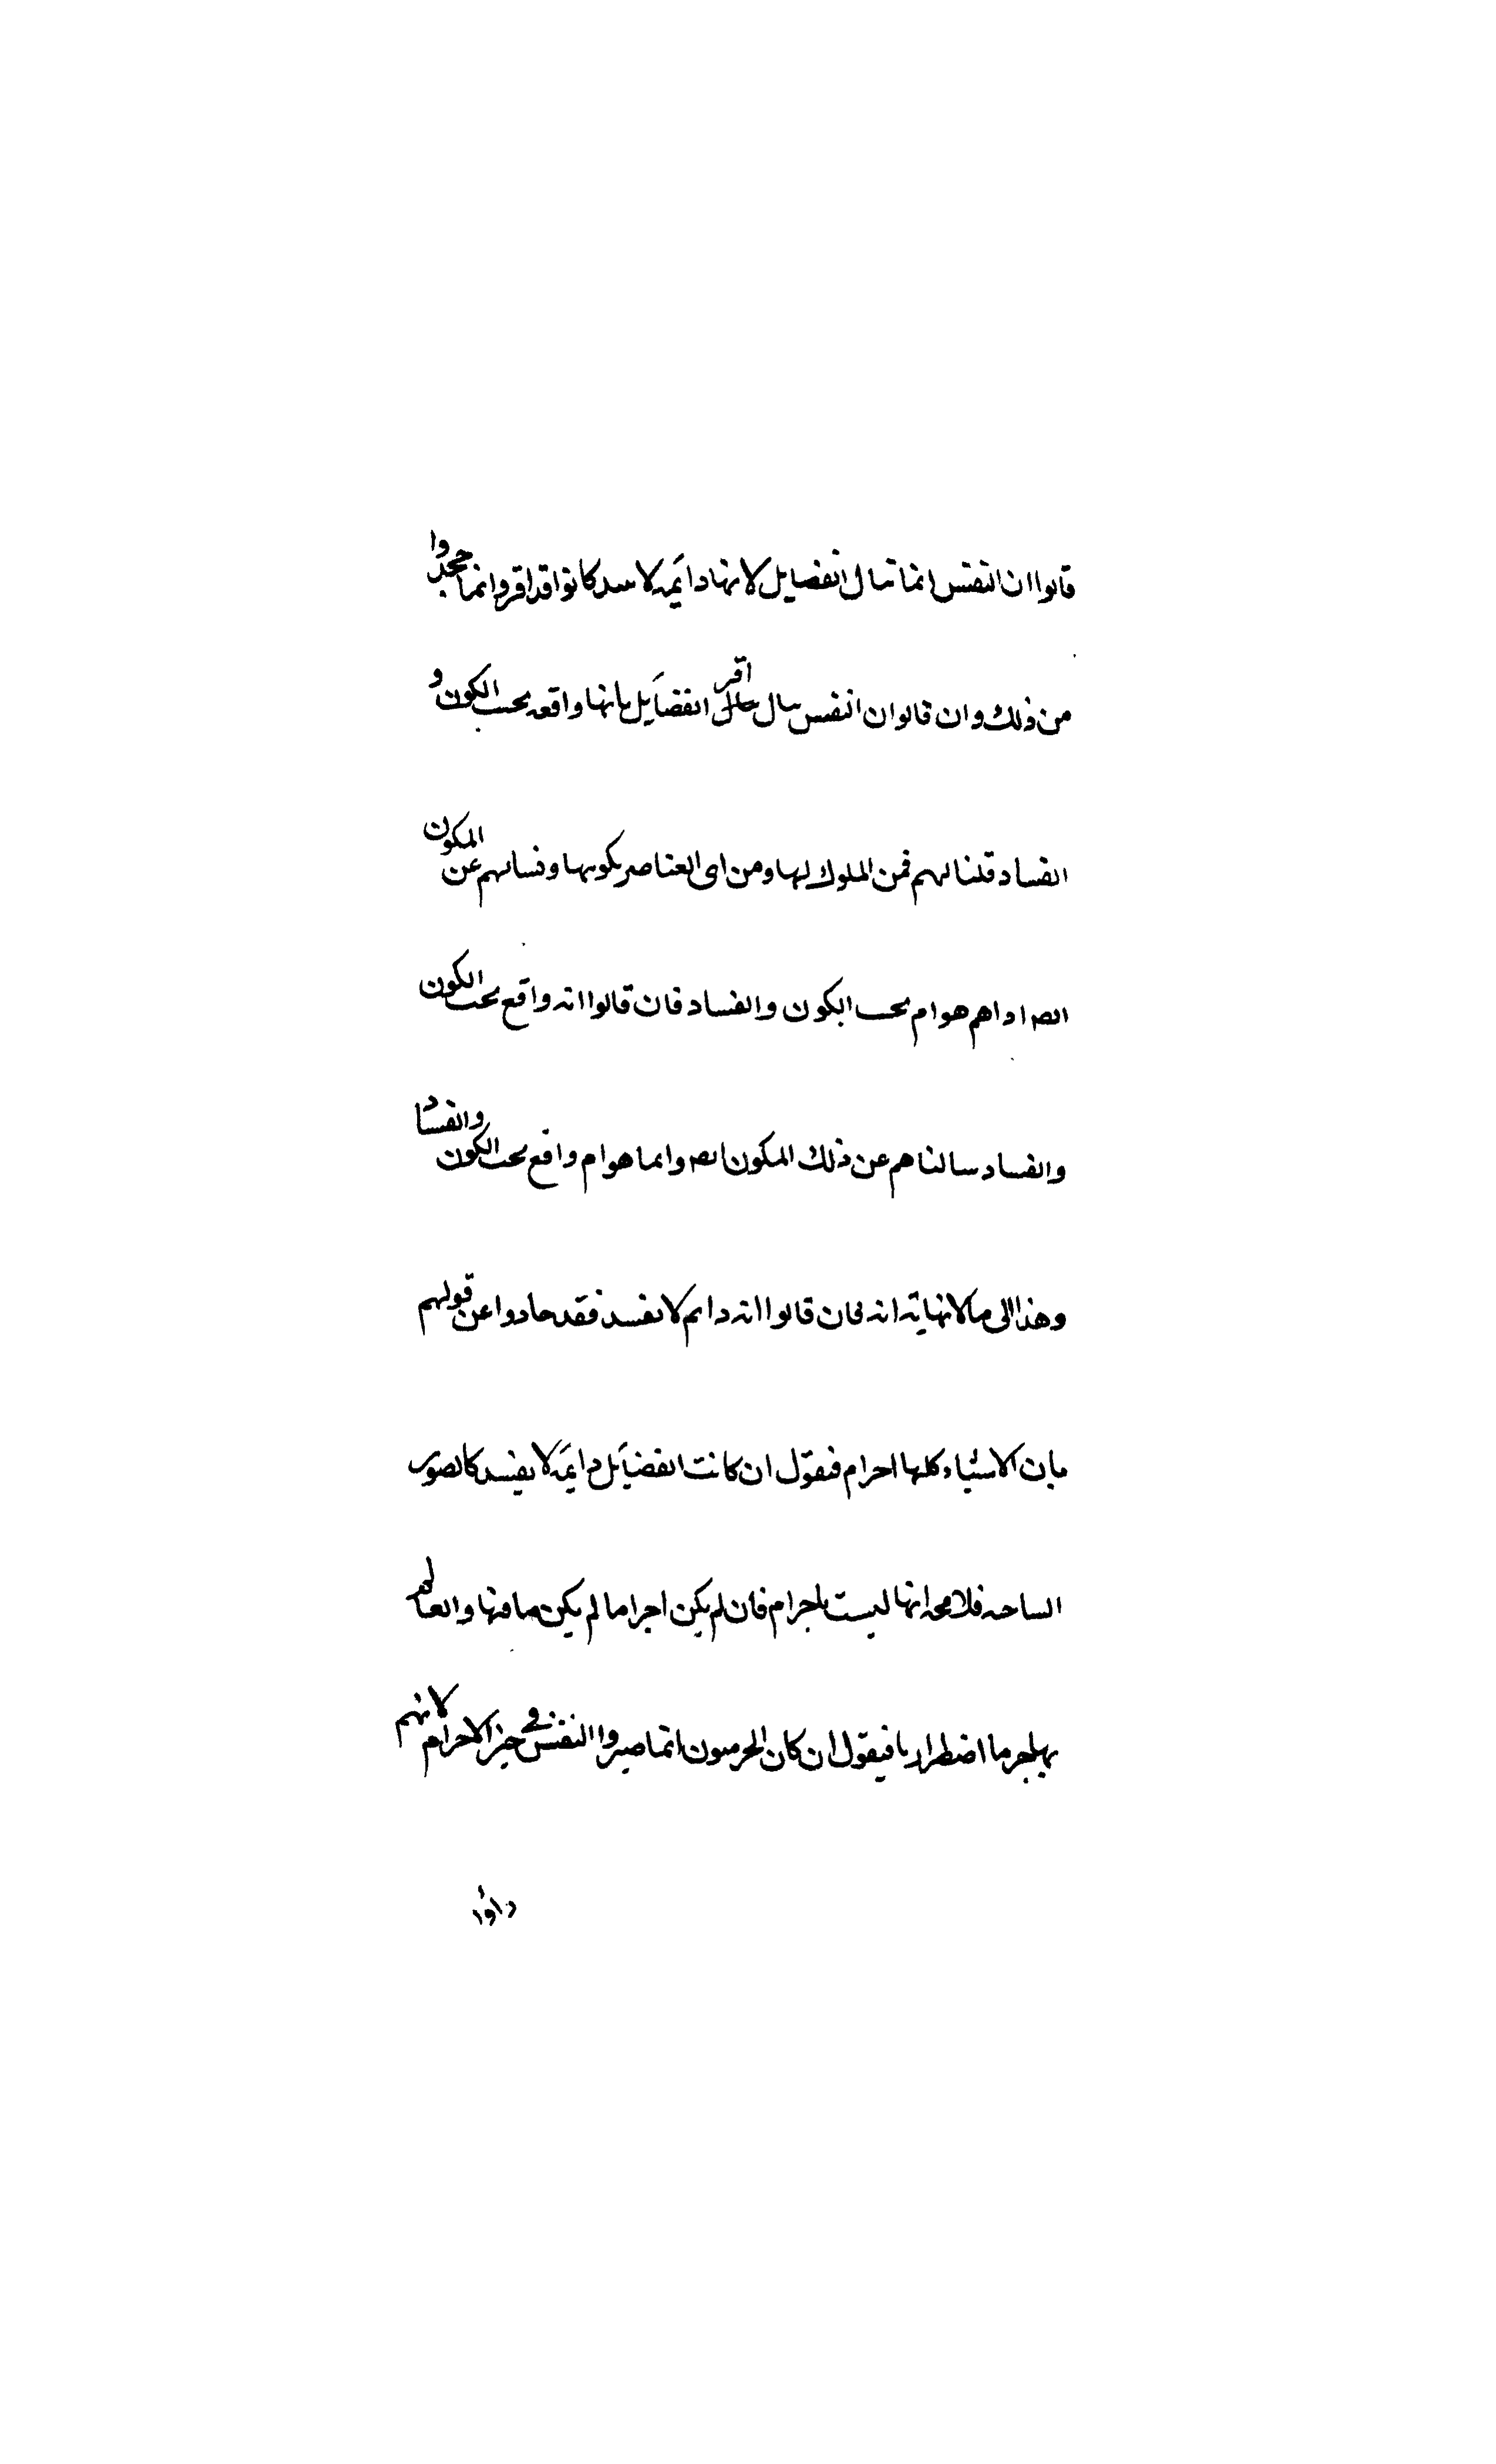 قالوا ان النفس انما تنال الفضايل لانها دايمه لا سد كانوا قد اقروا نما جحدوا
من ذلك وان قالوا ان النفس سال حال اقر الفضايل بانها واقعه تحت الكون و
الفساد قلنا لهم فمن الملوك لها ومن اى العناصر يكونها ونسالهم عن المكون
الصا داهم هو ام تحت الكون والفساد فان قالوا انه واقع تحت الكون
والفساد سالناهم عن ذلك المكون انصا وانما هو ام واقع تحت الكون والفساد
وهذا الى ما لا نهاية انه فان قالوا انه دايم لا يفسد فقد حادوا عن قولهم
بان الاشياء كلها اجرام فنقول ان كانت الفضايل دايمة لا يفسد كالصور
الساحه فلا محه انها ليست باجرام فان لم يكن اجراما لم يكن ما فيها والعالم
بها جرما اضطرارا فيقول ان كان الجرميون انما صيروا النفس في حيز الاجرام لانهم
راوا